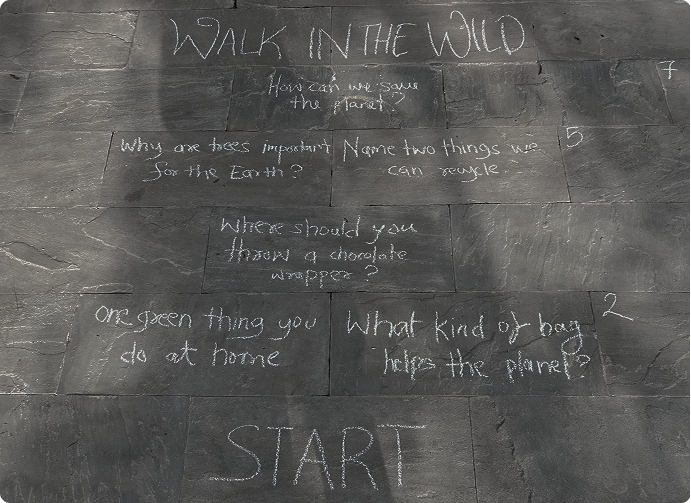 WALK IN THE WILD
7
How can we save
the planet?
Why are trees important
for the Earth?
Name two things we
can recycle.
5
Where should you
throw a chocolate
wrapper?
one green thing you
do at home
What kind of bag
helps the planet?
2
START